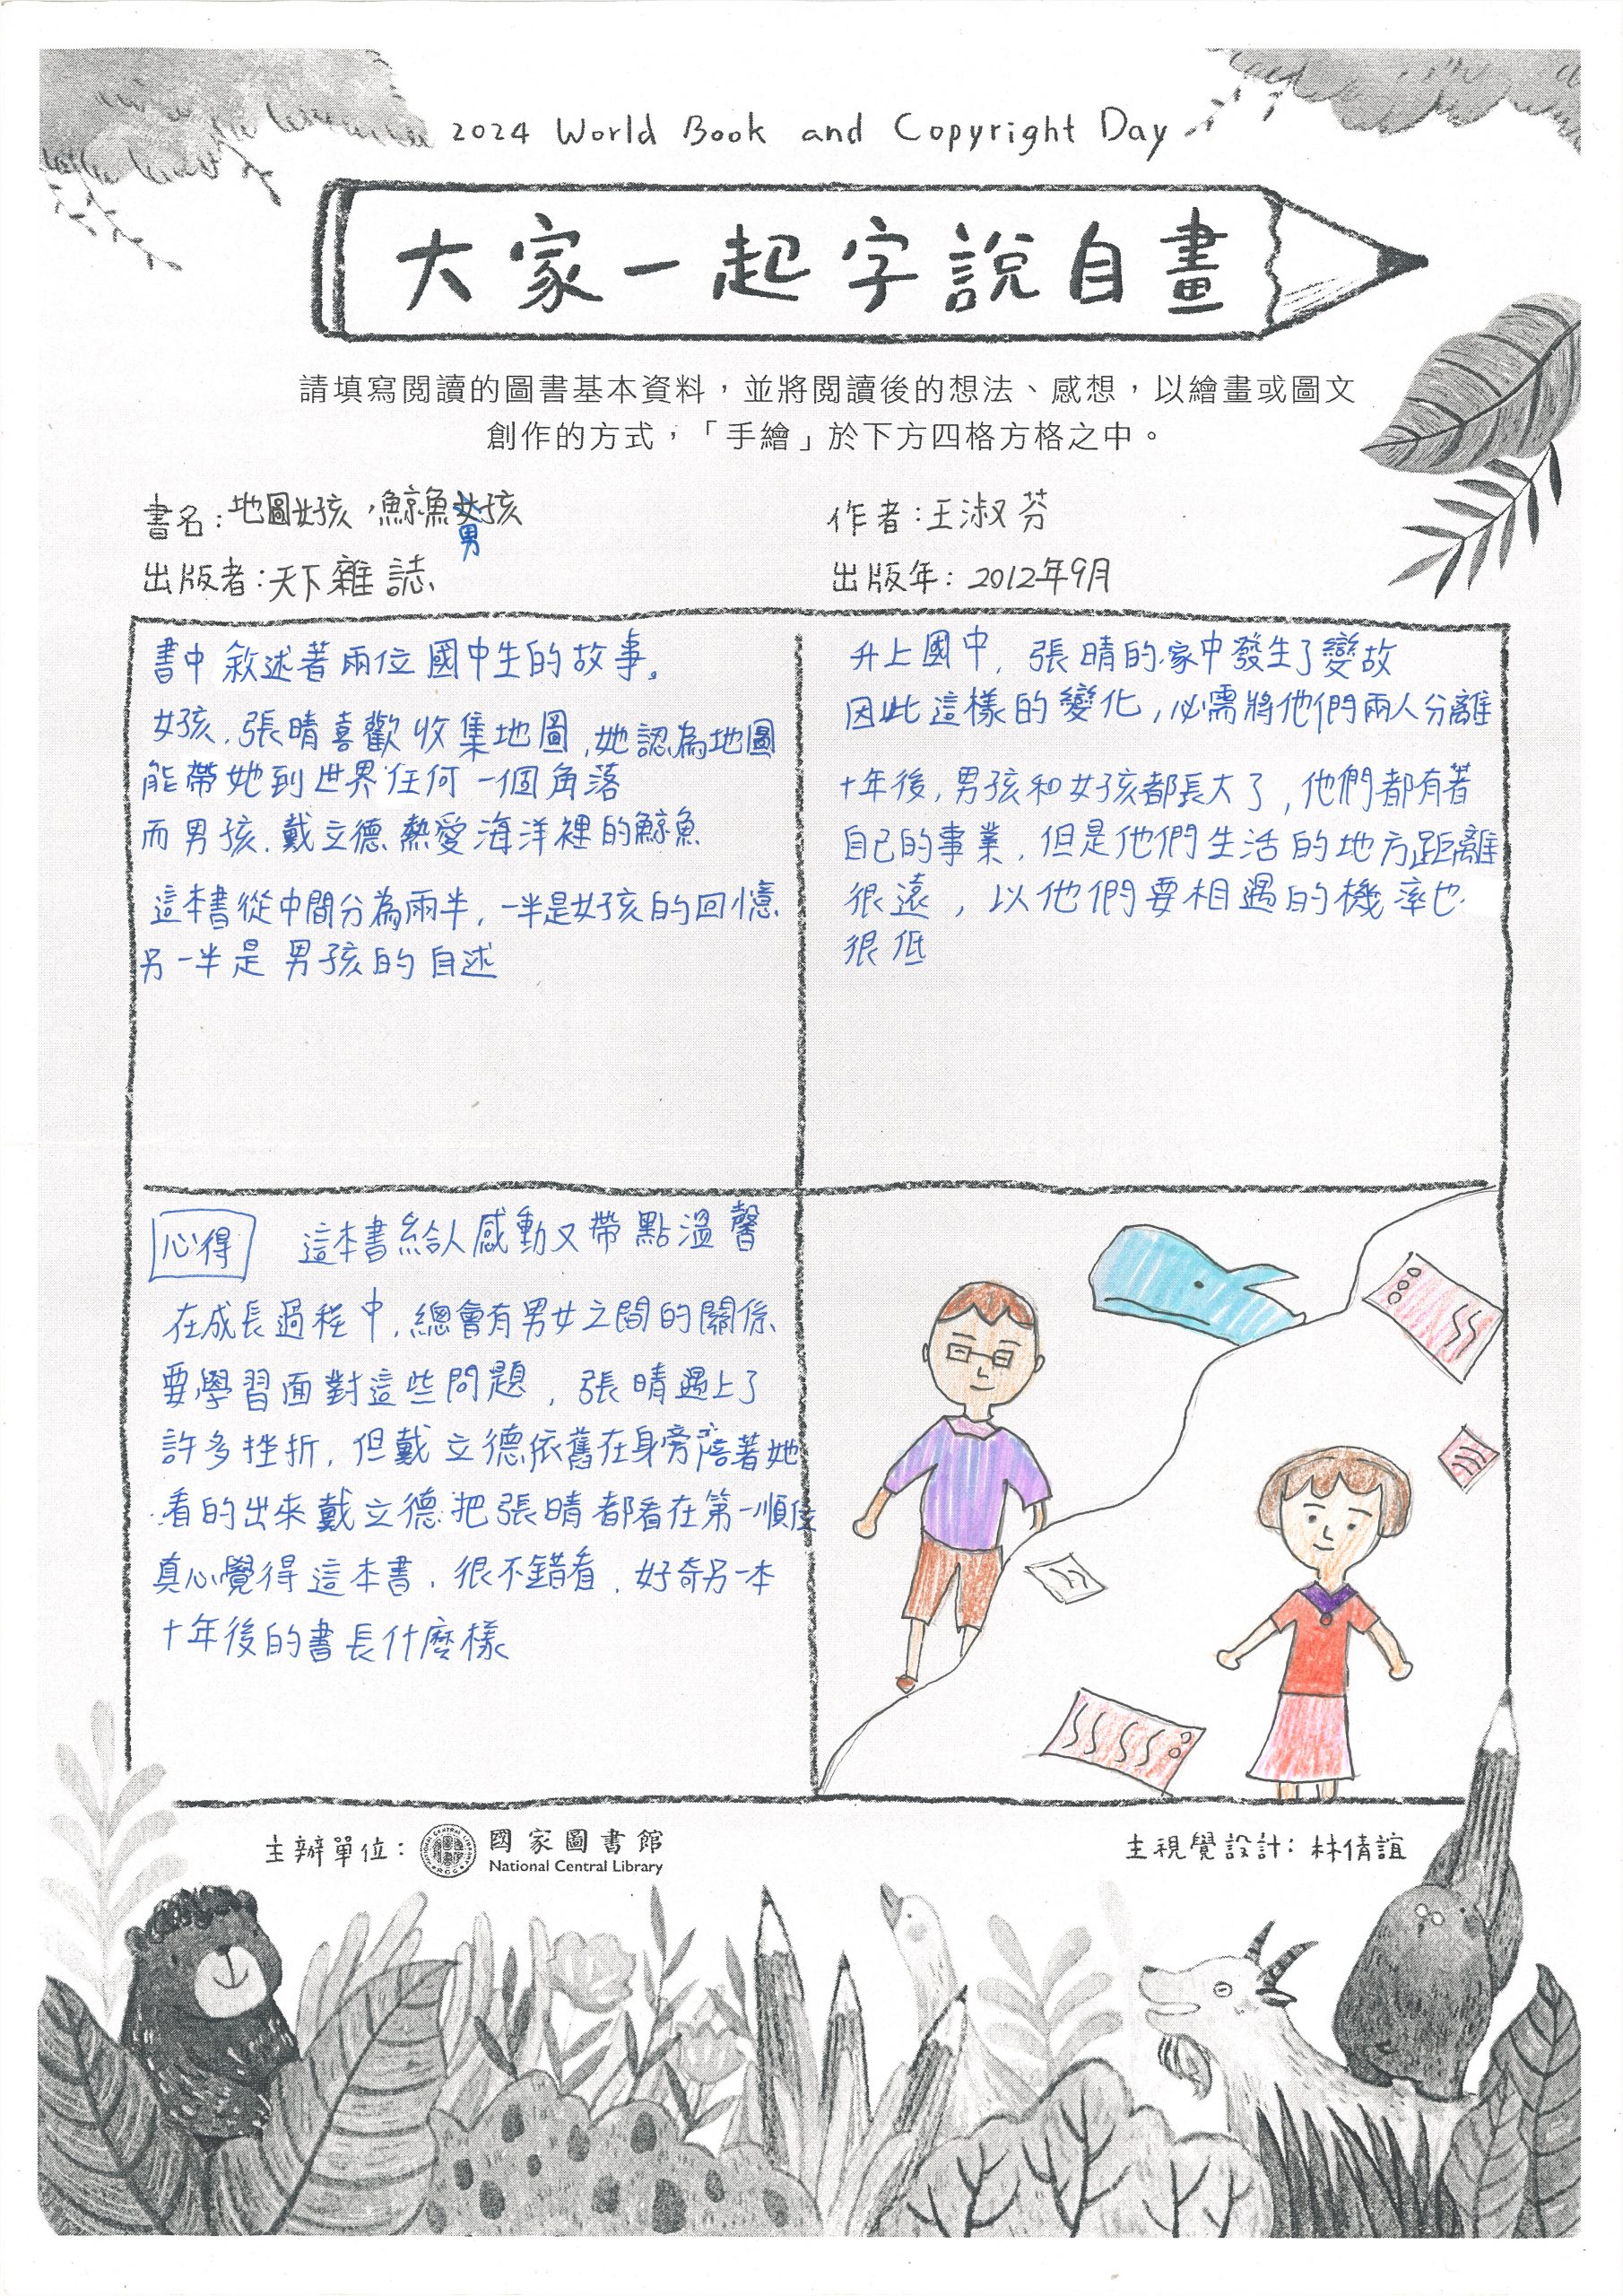 2024 World Book and Copyright Day
大家一起字說自畫
請填寫閱讀的圖書基本資料，並將閱讀後的想法、感想，以繪畫或圖文
創作的方式，「手繪」於下方四格方格之中。
書名：地圖女孩，鯨魚男孩
作者：王淑芬
出版者：天下雜誌
出版年：2012年9月
書中敘述著兩位國中生的故事。
女孩，張晴喜歡收集地圖，她認為地圖
能帶她到世界任何一個角落
而男孩，戴立德熱愛海洋裡的鯨魚
這本書從中間分為兩半，一半是女孩的回憶
另一半是男孩的自述
升上國中，張晴的家中發生了變故
因此這樣的變化，必需將他們兩人分離
十年後，男孩和女孩都長大了，他們都有著
自己的事業，但是他們生活的地方距離
很遠，以他們要相遇的機率也
很低
心得 這本書給人感動又帶點溫馨
在成長過程中，總會有男女之間的關係
要學習面對這些問題，張晴遇上了
許多挫折，但戴立德依舊在身旁陪著她
看的出來戴立德把張晴都看在第一順位
真心覺得這本書，很不錯看，好奇另一本
十年後的書長什麼樣
主辦單位：國家圖書館
National Central Library
主視覺設計：林倩誼